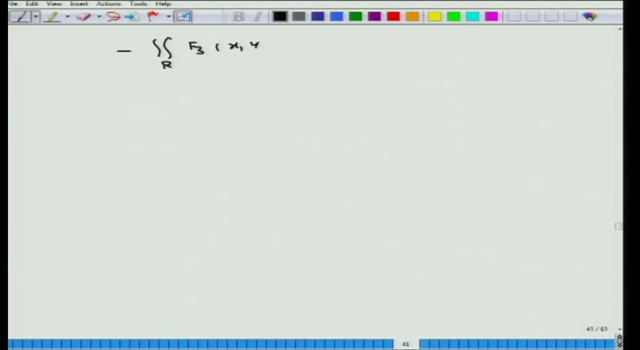 File Edit View Insert Actions Tools Help
− ∬ F₃ ( x, y
R
41 / 61
41